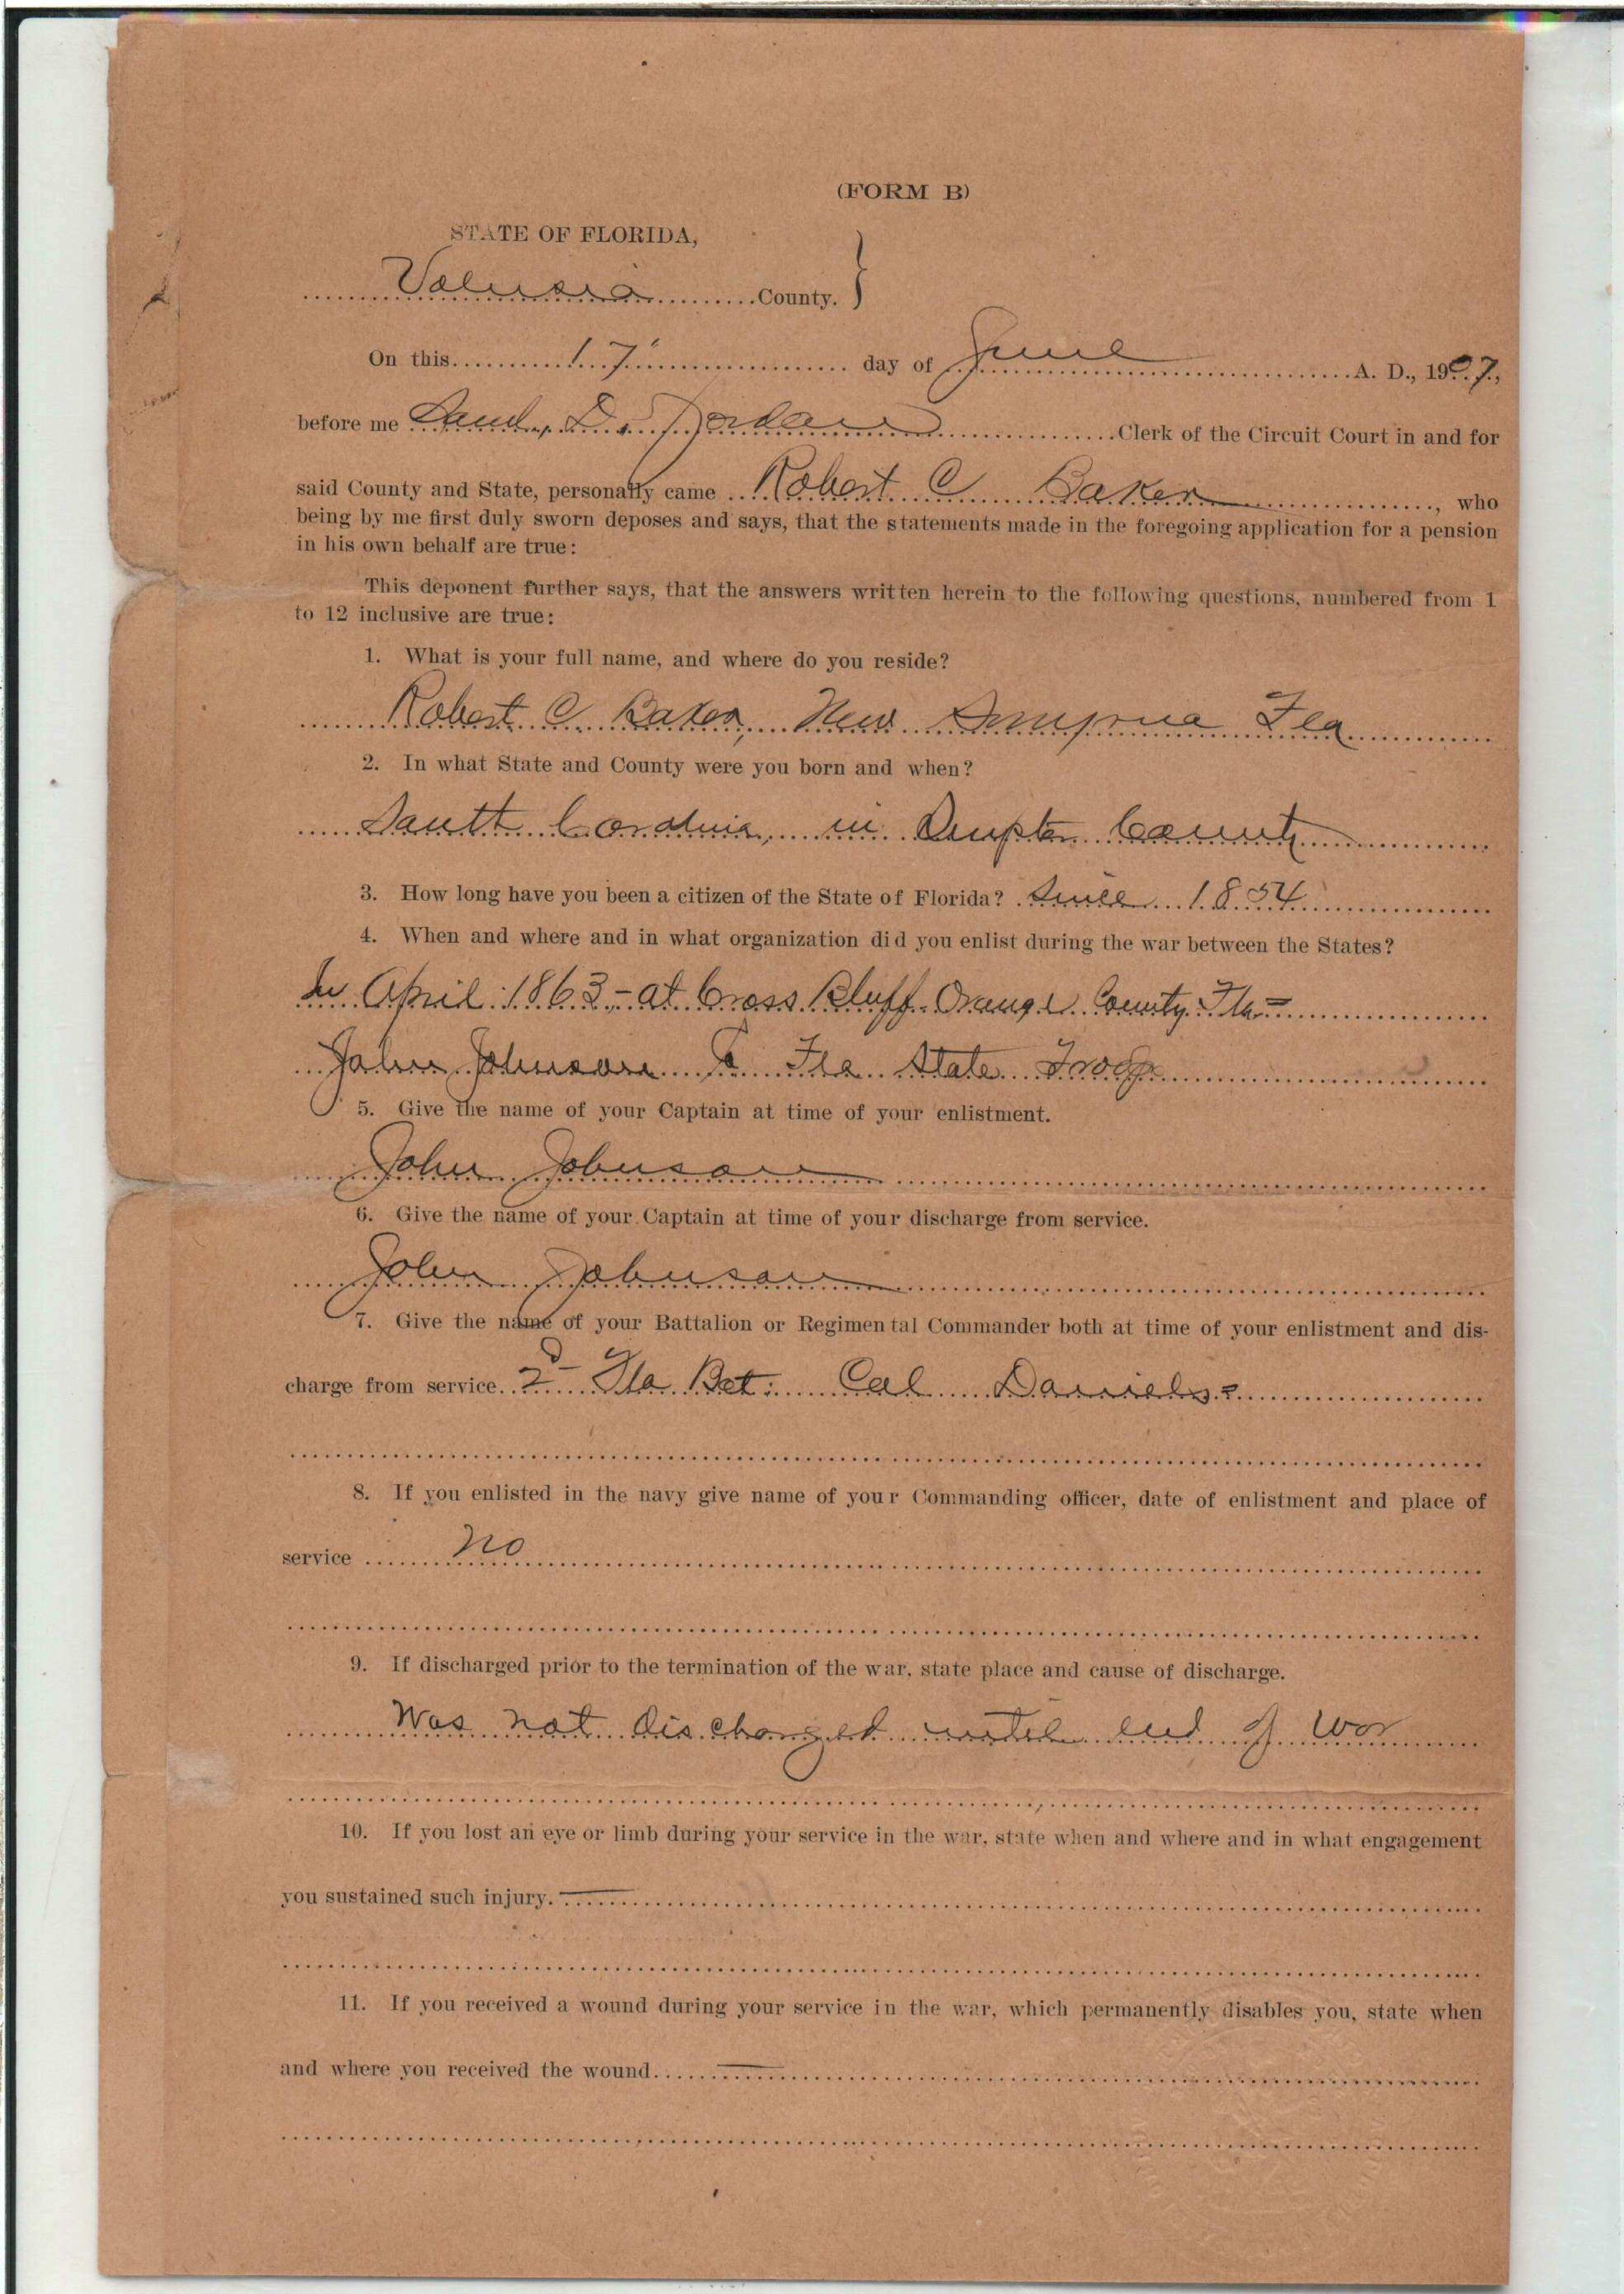 (FORM B)
STATE OF FLORIDA,
Volusia County. }
On this 17 day of June A. D., 1907,
before me Saml. D. Jordan Clerk of the Circuit Court in and for
said County and State, personally came Robert C Baker, who
being by me first duly sworn deposes and says, that the statements made in the foregoing application for a pension
in his own behalf are true:
This deponent further says, that the answers written herein to the following questions, numbered from 1
to 12 inclusive are true:
1. What is your full name, and where do you reside?
Robert C. Baker, New Smyrna Fla
2. In what State and County were you born and when?
South Carolina, in Sumpter County
3. How long have you been a citizen of the State of Florida? Since 1854
4. When and where and in what organization did you enlist during the war between the States?
In April 1863 - at Cross Bluff Orange County Fla -
John Johnson Co Fla State Troop
5. Give the name of your Captain at time of your enlistment.
John Johnson
6. Give the name of your Captain at time of your discharge from service.
John Johnson
7. Give the name of your Battalion or Regimental Commander both at time of your enlistment and dis-
charge from service. 2d Fla Bat. Col Daniels
8. If you enlisted in the navy give name of your Commanding officer, date of enlistment and place of
service no
9. If discharged prior to the termination of the war, state place and cause of discharge.
Was not discharged until end of war
10. If you lost an eye or limb during your service in the war, state when and where and in what engagement
you sustained such injury. —
11. If you received a wound during your service in the war, which permanently disables you, state when
and where you received the wound. —